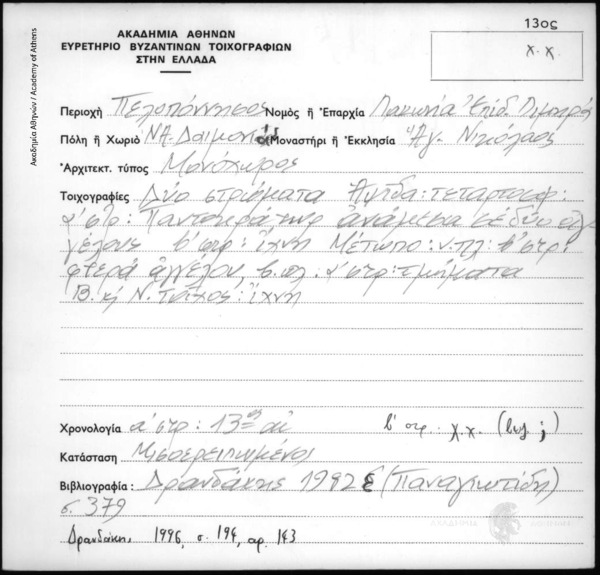 13ος
ΑΚΑΔΗΜΙΑ ΑΘΗΝΩΝ
ΕΥΡΕΤΗΡΙΟ ΒΥΖΑΝΤΙΝΩΝ ΤΟΙΧΟΓΡΑΦΙΩΝ
ΣΤΗΝ ΕΛΛΑΔΑ
χ.χ.
Ακαδημία Αθηνών / Academy of Athens
Περιοχή Πελοπόννησος Νομός ἤ Ἐπαρχία Λακωνία Ἐπίδ. Λιμηρᾶς
Πόλη ἤ Χωριό ΝΑ. Δαιμονιάς Μοναστήρι ἤ Ἐκκλησία Ἁγ. Νικόλαος
Ἀρχιτεκτ. τύπος Μονόχωρος
Τοιχογραφίες Δύο στρώματα Ἁψίδα: τεταρτοσφ:
α' στρ: Παντοκράτωρ ἀνάμεσα σέ δύο ἀγ-
γέλους β' στρ: ἴχνη Μέτωπο: ν.πλ. β' στρ:
φτερά ἀγγέλου, β.πλ. α' στρ: τμήματα
Β. κ' Ν. Τοῖχος: ἴχνη
Χρονολογία α' στρ: 13ος αἰ β' στρ. χ.χ. (βυζ;)
Κατάσταση Μισοερειπωμένος
Βιβλιογραφία: Δρανδάκης 1982 (Παναγιωτίδη)
σ. 379
Δρανδάκη, 1996, σ. 194, αρ. 143
ΑΚΑΔΗΜΙΑ ΑΘΗΝΩΝ